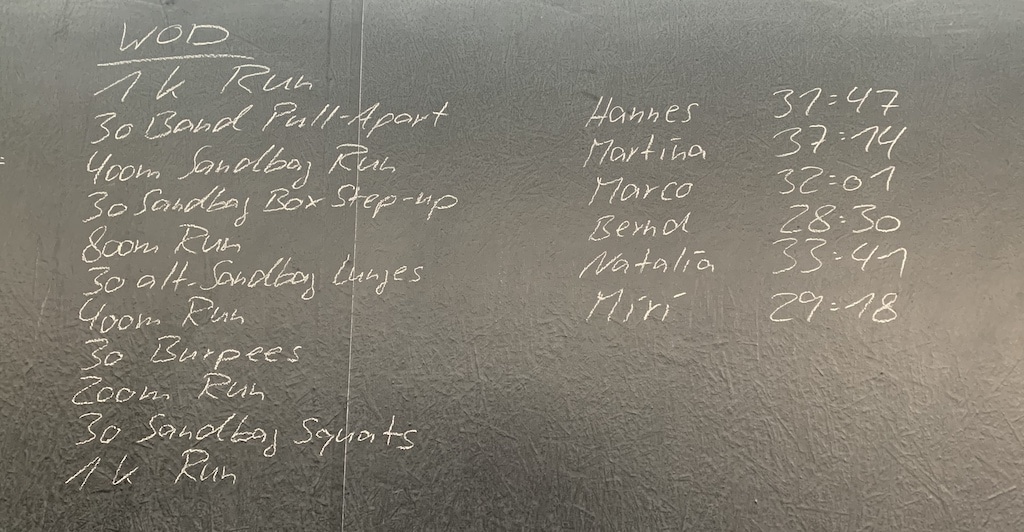 WOD
1k Run
30 Band Pull-Apart
400m Sandbag Run
30 Sandbag Box Step-up
800m Run
30 alt. Sandbag Lunges
400m Run
30 Burpees
200m Run
30 Sandbag Squats
1k Run
Hannes 31:47
Martina 37:14
Marco 32:01
Bernd 28:30
Natalia 33:41
Miri 29:18